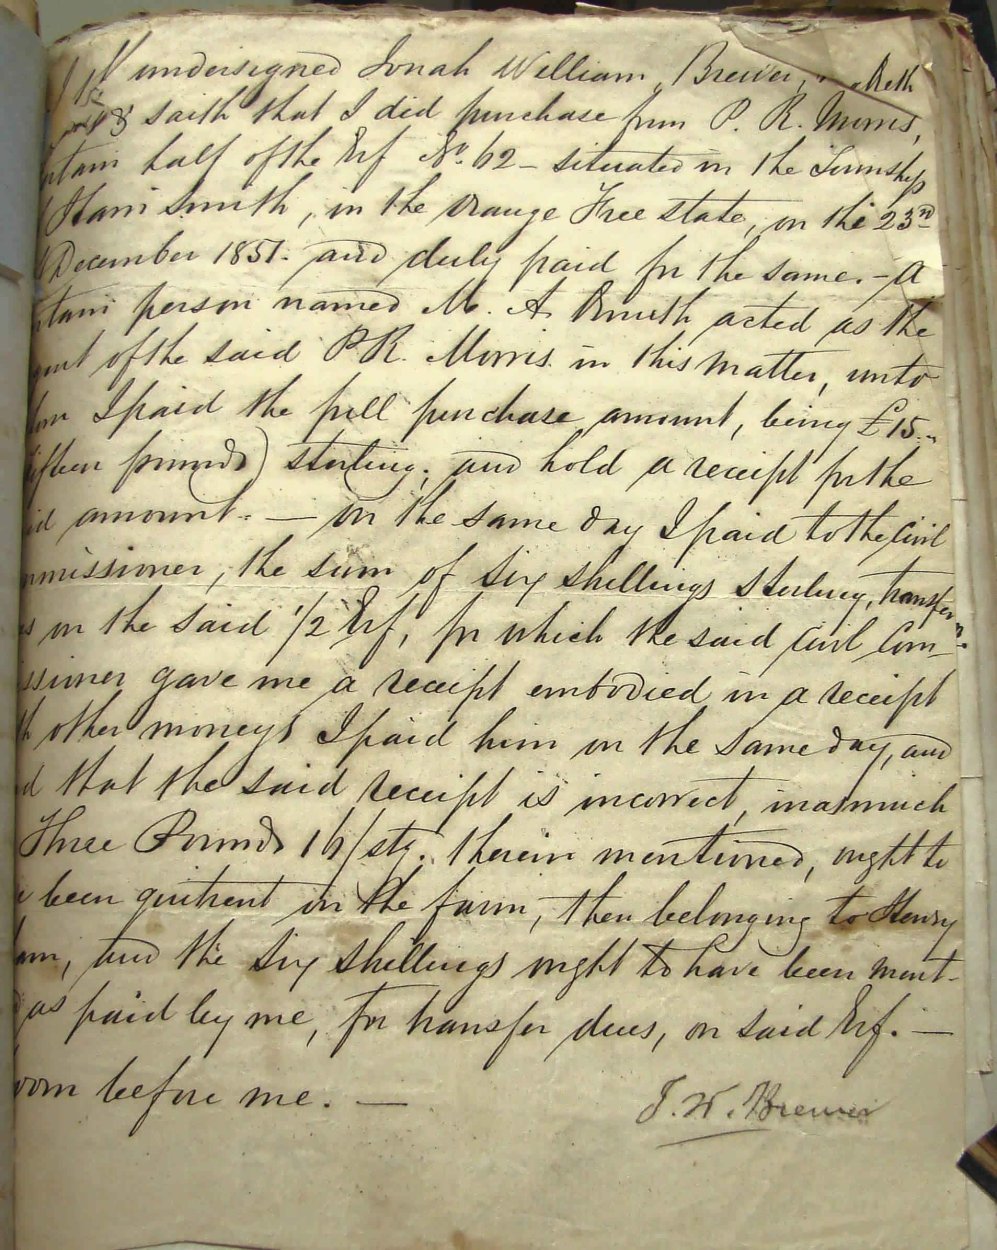 I the undersigned Jonah William Brewer, maketh
& saith that I did purchase from P. R. Morris,
rtain half of the Erf No. 62 – situated in the Township
Harrismith, in the Orange Free State, on the 23rd
December 1851. and duly paid for the same. – A
rtain person named M. A. Bruith acted as the
gent of the said P R. Morris in this matter, unto
hom I paid the full purchase amount, being £15..
ifteen pounds) sterling, and hold a receipt for the
id amount. – on the same day I paid to the Civil
mmissioner, the sum of six shellings sterling, transfer
es on the said 1/2 Erf, for which the said Civil Com–
issioner gave me a receipt embodied in a receipt
th other moneys I paid him on the same day, and
d that the said receipt is incorrect, inasmuch
Three Pounds 16/ stg. therein mentioned, ought to
e been quitrent on the farm, then belonging to Henry
am, and the six shellings ought to have been ment–
d as paid by me, for transfer dues, on said Erf. –
worn before me. –
J. W. Brewer